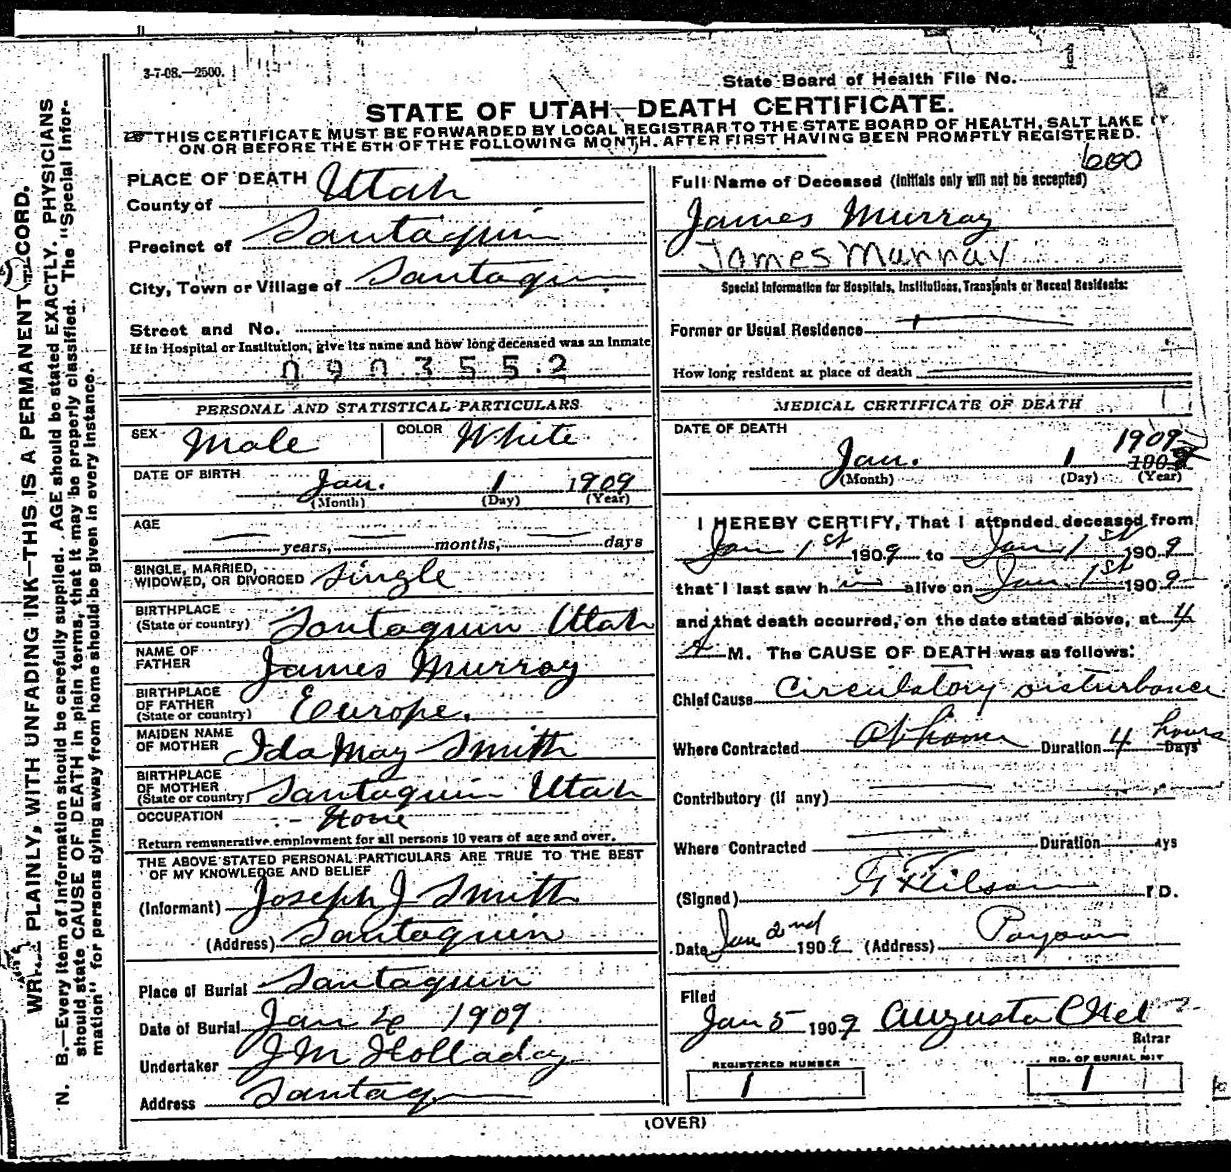 3-7-08.—2500.
State Board of Health File No. 1
STATE OF UTAH—DEATH CERTIFICATE.
THIS CERTIFICATE MUST BE FORWARDED BY LOCAL REGISTRAR TO THE STATE BOARD OF HEALTH, SALT LAKE
ON OR BEFORE THE 5TH OF THE FOLLOWING MONTH. AFTER FIRST HAVING BEEN PROMPTLY REGISTERED.
PLACE OF DEATH
County of Utah
Precinct of Santaquin
City, Town or Village of Santaquin
Street and No.
If in Hospital or Institution, give its name and how long deceased was an Inmate
0903552
PERSONAL AND STATISTICAL PARTICULARS
SEX Male COLOR White
DATE OF BIRTH Jan. 1 1909
(Month) (Day) (Year)
AGE
years, months, days
SINGLE, MARRIED,
WIDOWED, OR DIVORCED Single
BIRTHPLACE
(State or country) Santaquin Utah
NAME OF
FATHER James Murray
BIRTHPLACE
OF FATHER
(State or country) Europe.
MAIDEN NAME
OF MOTHER Ida May Smith
BIRTHPLACE
OF MOTHER
(State or country) Santaquin Utah
OCCUPATION None
Return remunerative employment for all persons 10 years of age and over.
THE ABOVE STATED PERSONAL PARTICULARS ARE TRUE TO THE BEST
OF MY KNOWLEDGE AND BELIEF
(Informant) Joseph J Smith
(Address) Santaquin
Place of Burial Santaquin
Date of Burial Jan 1909.
Undertaker J M Holladay
Address Santaq
600
Full Name of Deceased (initials only will not be accepted)
James Murray
James Murray
Special Information for Hospitals, Institutions, Transients or Recent Residents:
Former or Usual Residence
How long resident at place of death
MEDICAL CERTIFICATE OF DEATH
DATE OF DEATH 1909
Jan. 1 190
(Month) (Day) (Year)
I HEREBY CERTIFY, That I attended deceased from
Jan 1st 1909 to Jan 1st 1909
that I last saw h im alive on Jan 1st 1909
and that death occurred, on the date stated above, at 4
A M. The CAUSE OF DEATH was as follows:
Chief Cause Circulatory Disturbance
Where Contracted At home Duration 4 hours Days
Contributory (if any)
Where Contracted Duration ays
(Signed) D.
Date Jan 2nd 1909 (Address) Payson
Filed
Jan 5 1909 Augusta
trar
REGISTERED NUMBER
1
NO. OF BURIAL MIT
1
(OVER)
PLAINLY, WITH UNFADING INK—THIS IS A PERMANENT CORD.
N. B.—Every item of information should be carefully supplied. AGE should be stated EXACTLY. PHYSICIANS
should state CAUSE OF DEATH in plain terms, that it may be properly classified. The "Special Infor-
mation" for persons dying away from home should be given in every instance.